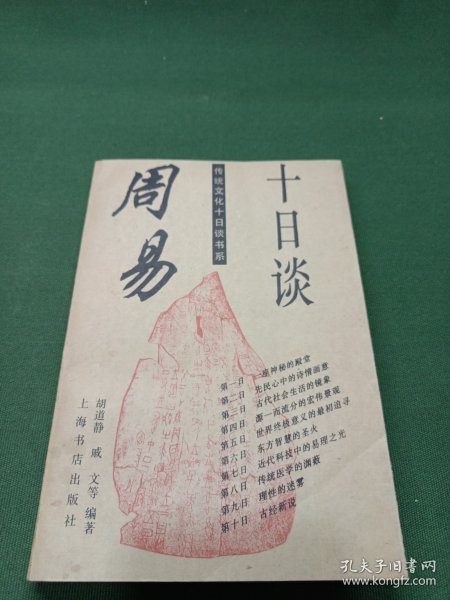 周易
传统文化十日谈书系
十日谈
第一日 一座神秘的殿堂
第二日 先民心中的诗情画意
第三日 古代社会生活的镜象
第四日 源一而流分的宏伟景观
第五日 世界终极意义的最初追寻
第六日 东方智慧的圣火
第七日 近代科技中的易理之光
第八日 传统医学的渊薮
第九日 理性的迷雾
第十日 古经新说
胡道静 戚文等 编著
上海书店出版社
孔夫子旧书网
www.kongfz.com